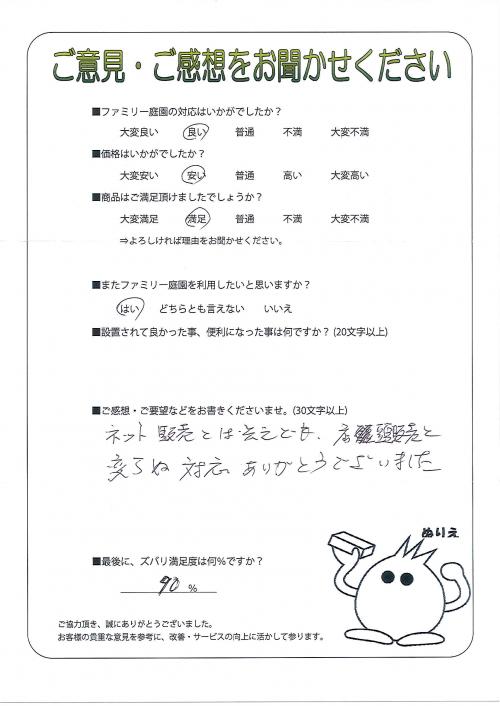 ご意見・ご感想をお聞かせください
■ファミリー庭園の対応はいかがでしたか？
大変良い 良い 普通 不満 大変不満
■価格はいかがでしたか？
大変安い 安い 普通 高い 大変高い
■商品はご満足頂けましたでしょうか？
大変満足 満足 普通 不満 大変不満
⇒よろしければ理由をお聞かせください。
■またファミリー庭園を利用したいと思いますか？
はい どちらとも言えない いいえ
■設置されて良かった事、便利になった事は何ですか？(20文字以上)
■ご感想・ご要望などをお書きくださいませ。(30文字以上)
ネット販売とは言えども、店頭販売と
変らぬ対応ありがとうございました
ぬりえ
■最後に、ズバリ満足度は何％ですか？
90 %
ご協力頂き、誠にありがとうございました。
お客様の貴重な意見を参考に、改善・サービスの向上に活かして参ります。